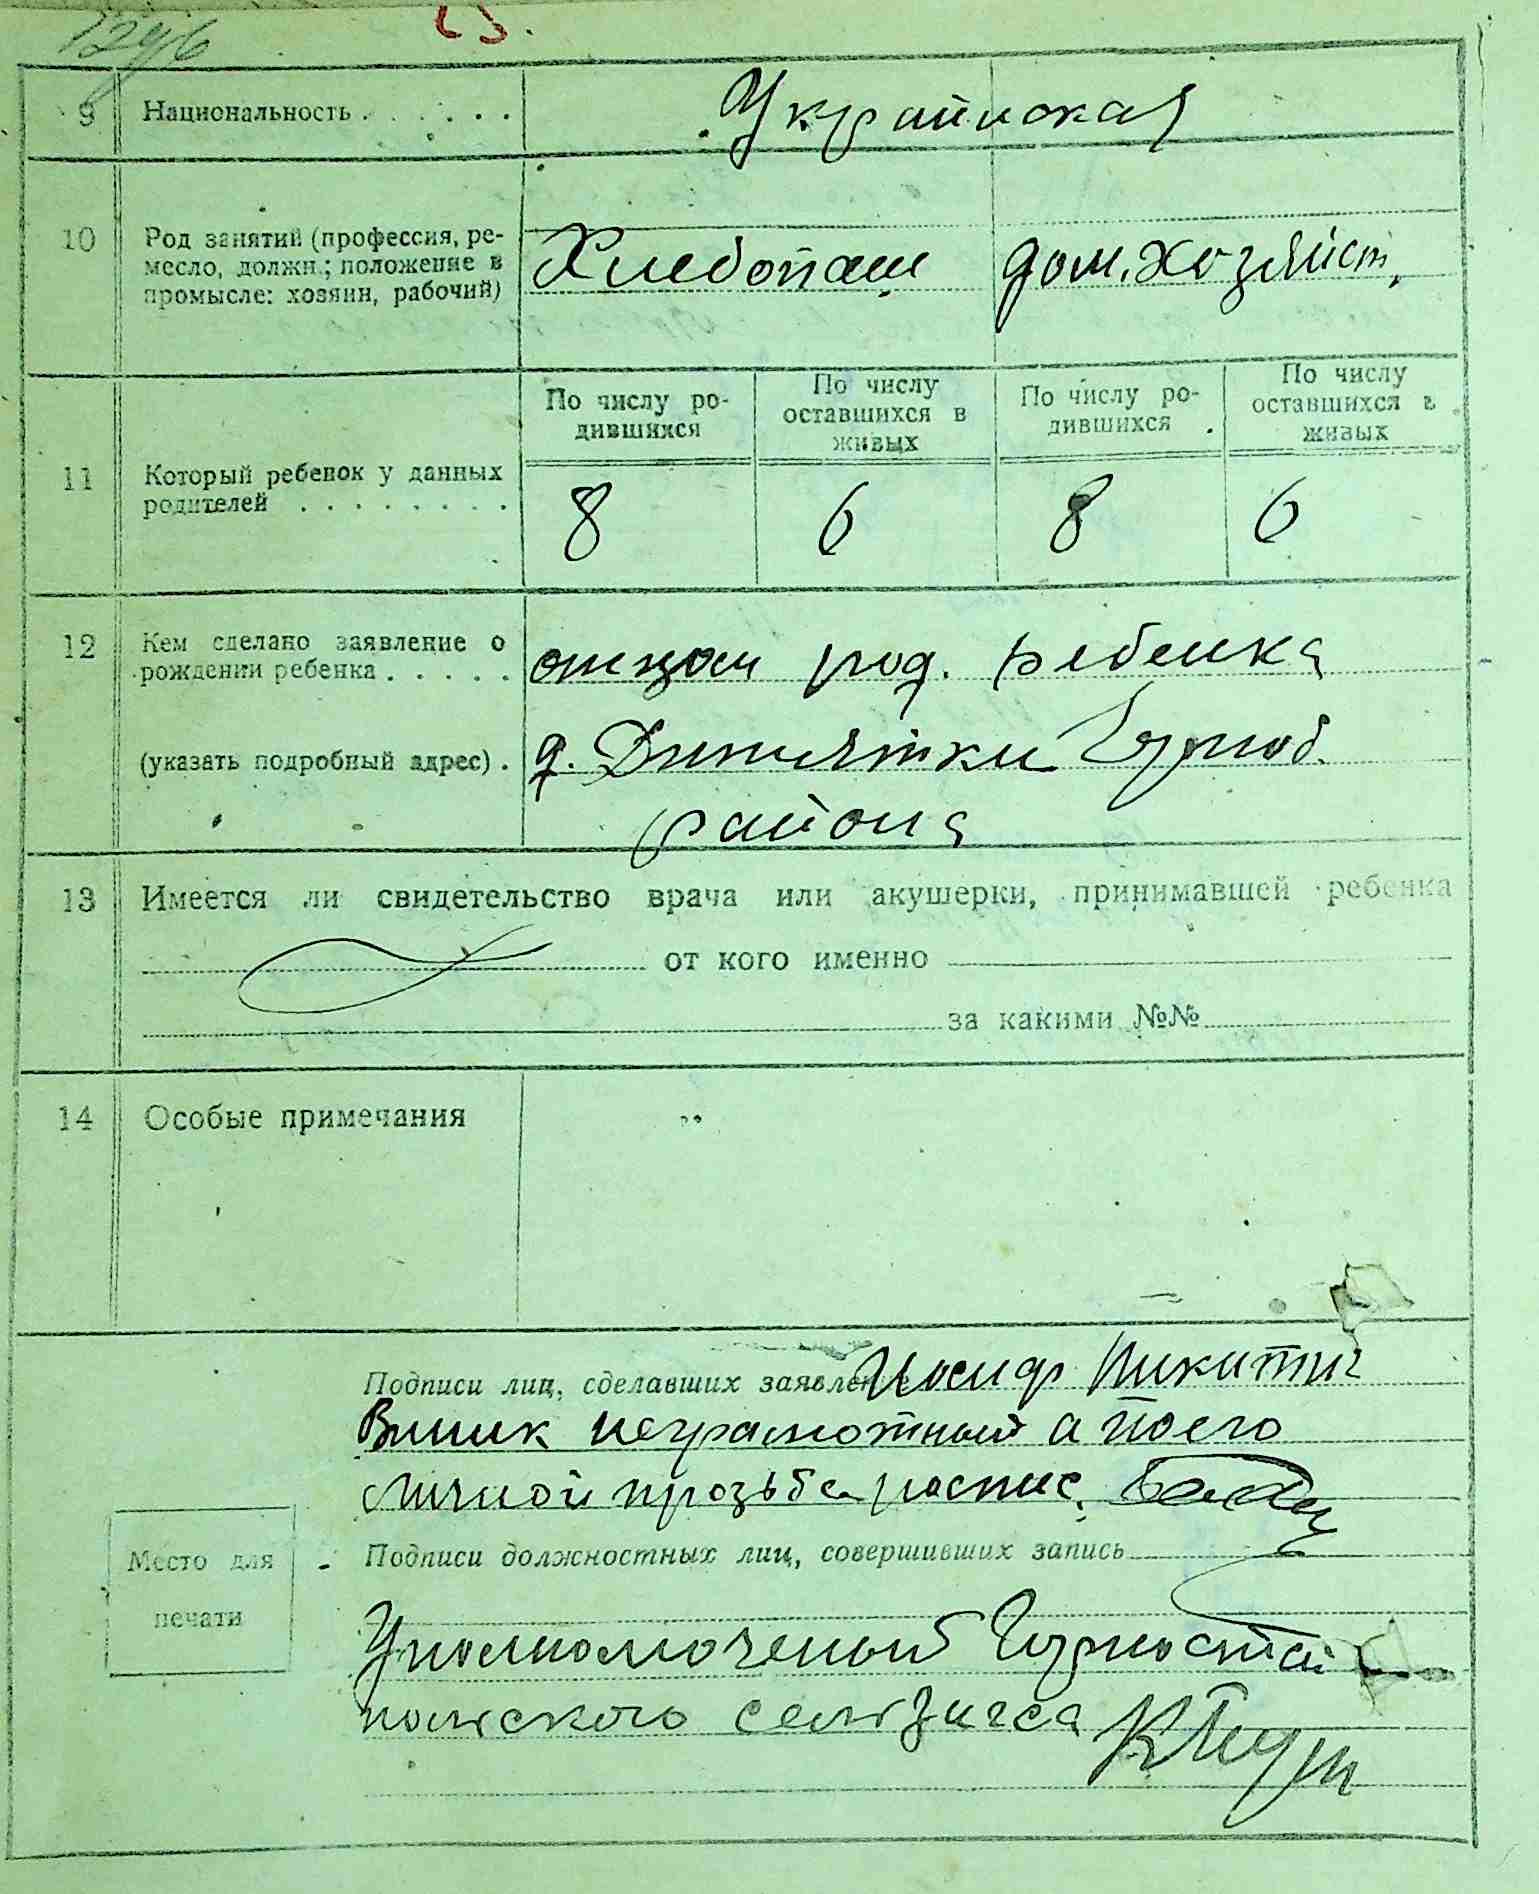 1296
9 Национальность . . . . . . Украинская
10 Род занятий (профессия, ре-
месло, должн.; положение в
промысле: хозяин, рабочий)
Хлебопаш дом. хозяйст.
По числу ро-
дившихся
По числу
оставшихся в
живых
По числу ро-
дившихся
По числу
оставшихся в
живых
11 Который ребенок у данных
родителей . . . . . . . .
8 6 8 6
12 Кем сделано заявление о
рождении ребенка . . . . .
отцом род. ребенка
(указать подробный адрес) . д. Дитятки Горност.
района
13 Имеется ли свидетельство врача или акушерки, принимавшей ребенка
от кого именно
за какими №№
14 Особые примечания
Подписи лиц, сделавших заявление Иосиф Никитич
неграмотный а по его
личной прозьбе роспис.
Место для
печати
Подписи должностных лиц, совершивших запись
Уполномоченый Горностай
польского сельзагса